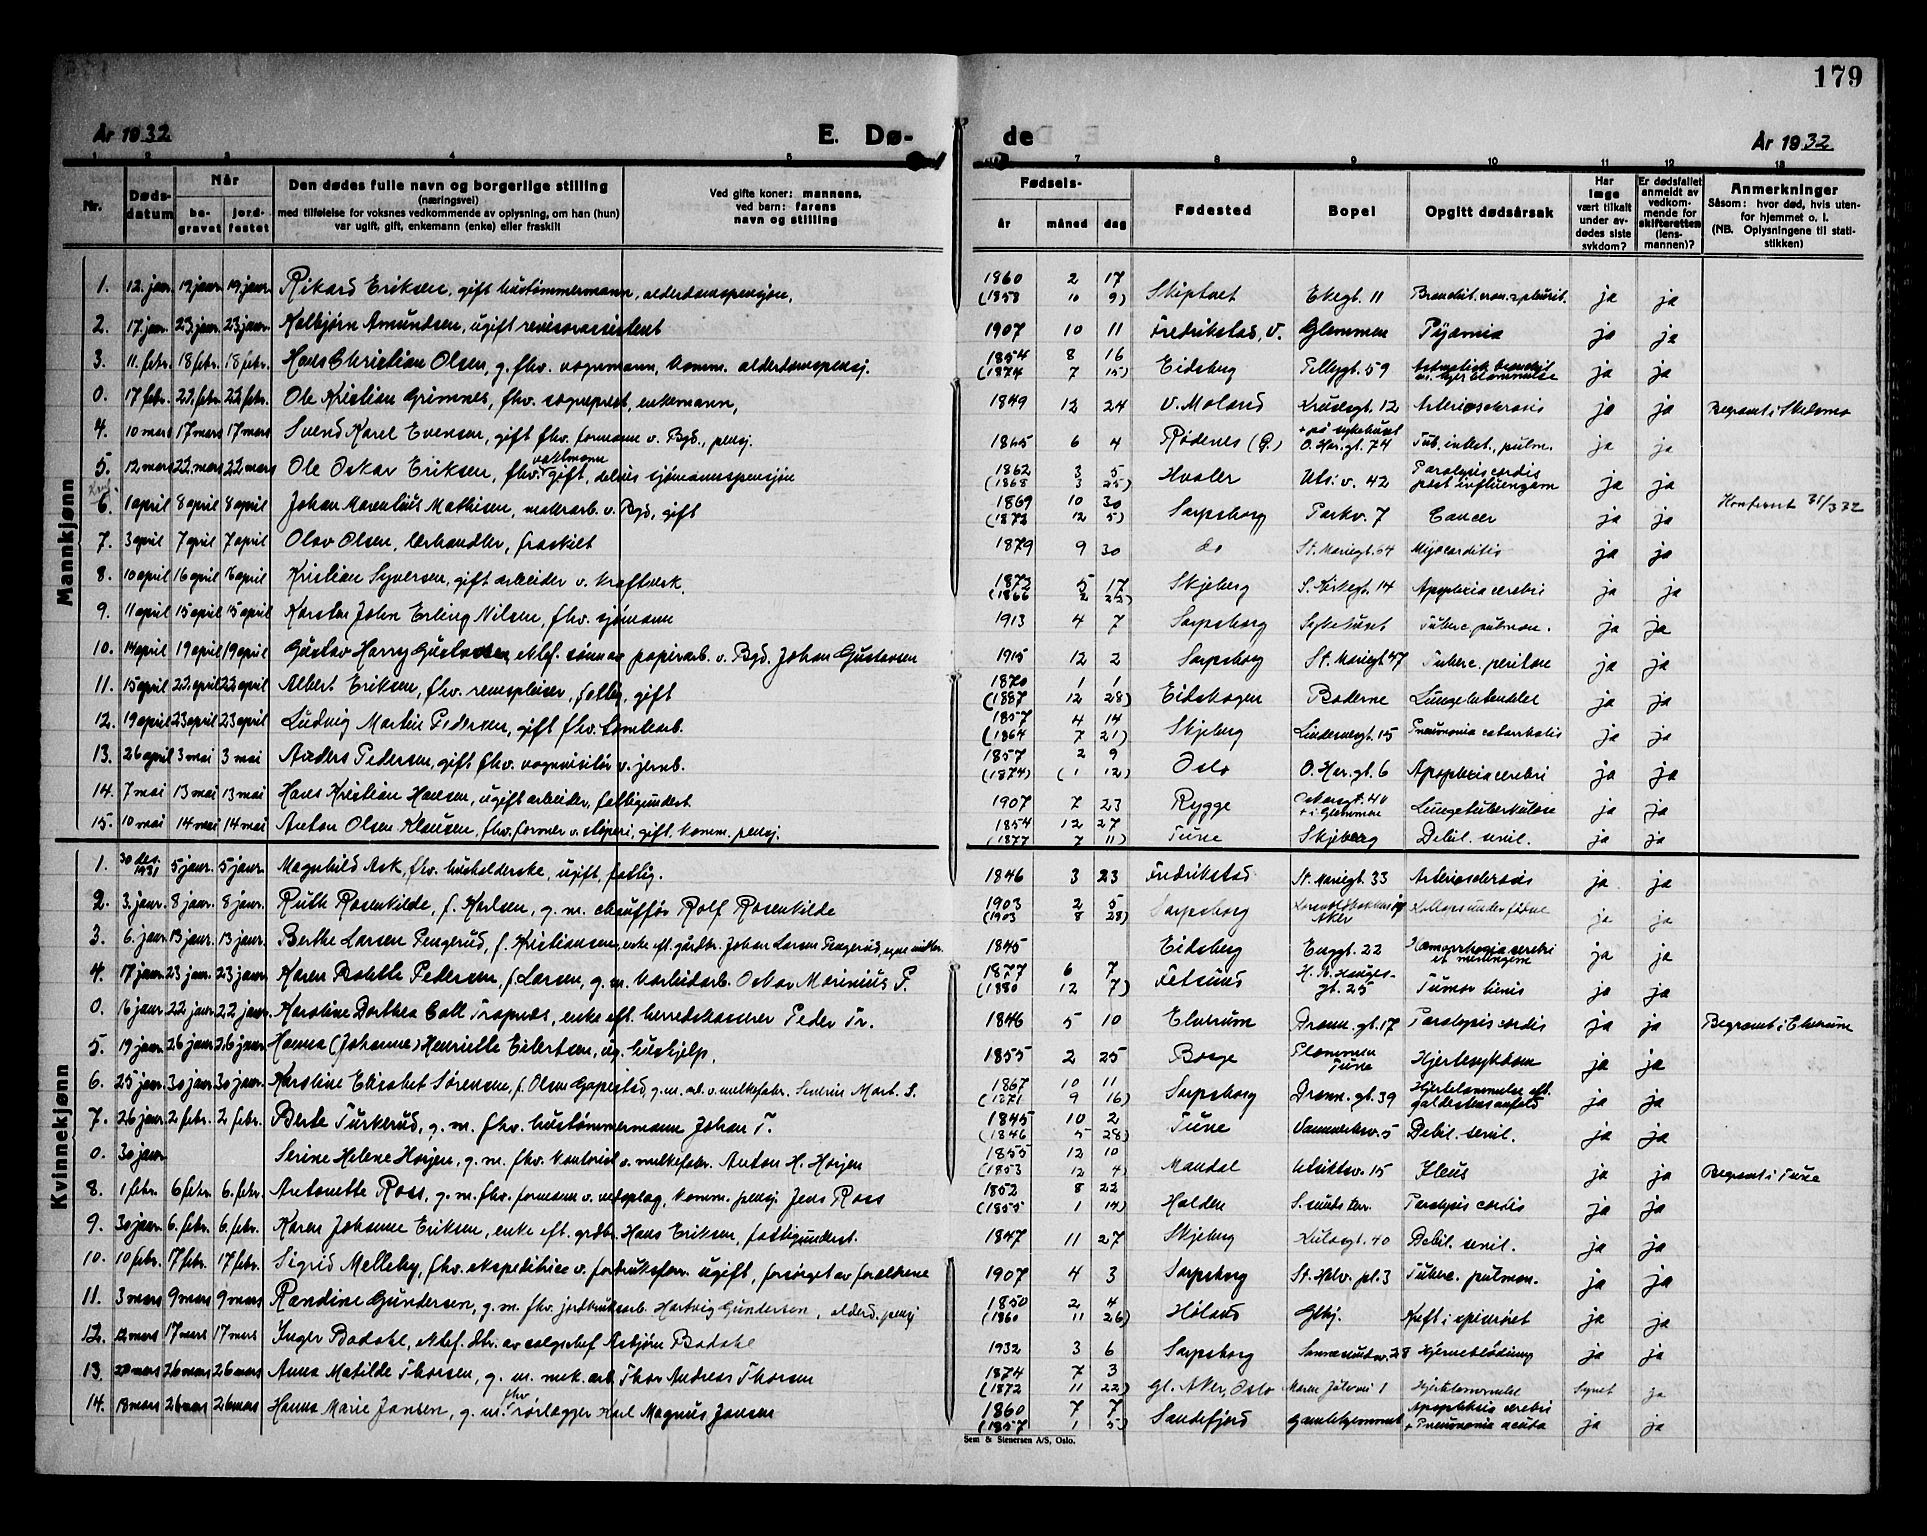 179
År 1932
E. Dø-
de
År 1932
1 2 3 4 5 7 8 9 10 11 12 13
Nr.
Døds-
datum
Når
be-
gravet
jord-
festet
Den dødes fulle navn og borgerlige stilling
(næringsvei)
med tilføielse for voksnes vedkommende av oplysning, om han (hun)
var ugift, gift, enkemann (enke) eller fraskilt
Ved gifte koner: mannens,
ved barn: farens
navn og stilling
Fødsels-
år måned dag
Fødested
Bopel
Opgitt dødsårsak
Har
læge
vært tilkalt
under av-
dødes siste
sykdom?
Er dødsfallet
anmeldt av
vedkom-
mende for
skifteretten
(lens-
mannen)?
Anmerkninger
Såsom: hvor død, hvis uten-
for hjemmet o. l.
(NB. Oplysningene til stati-
stikken)
Mannkjønn
1. 12. jan. 19 janr. 19. janr. Rikard Eriksen, gift hustømmermann, alderdomspensjon, 1860 2 17 (1858 10 9) Skiptvet Ekegt. 11 ja ja
2. 17. jan. 23. janr. 23 janr. Kolbjørn Amundsen, ugift revisorassistent 1907 10 11 Fredrikstad, V. Glemmen Pyæmia ja ja
3. 11. febr. 18 febr. 18 febr. Hans Christian Olsen, g. fhv. vognmann, komm. alderdomspensj. 1854 8 16 (1874 7 15) Eidsberg Pellygt. 59 ja ja
0. 17 febr. 22. febr. 22 febr. Ole Kristian Grimnes, fhv. sogneprest, enkemann, 1849 12 24 V. Moland Krusegt. 12 Arteriosclerosis ja ja Begravet i Skedsmo
4. 10 mars 17 mars 17 mars Svend Karel Evensen, gift fhv. formann v. Bgd., pensj. 1865 6 4 Rødenes (G.) + på sykehuset O. Har. gt. 74 Tub. intest., pulm. ja ja
5. 12 mars 22. mars 22 mars Ole Oskar Eriksen, fhv. vaktmann gift, delvis sjømannspensjon 1862 3 5 (1868 3 25) Hvaler Utsi. v. 42 Paralysis cordis post influenzam ja ja
6. 1 april 8 april 8 april Johan Marenius Mathisen, malerarb. v. Bgd, gift 1869 10 30 (1872 12 5) Sarpsborg Parkv. 7 Cancer ja ja
7. 3 april 7 april 7 april Olav Olsen, lærhandler, fraskilt 1879 9 30 do St. Mariegt. 64 Myocarditis ja ja
8. 10 april 16 april 16 april Kristian Syversen, gift arbeider v. kraftverk. 1872 5 17 (1866 2 22) Skjeberg S. Kirkegt. 14 Apoplexia cerebri ja ja
9. 11 april 15 april 15 april Karsten John Erling Nilsen, fhv. sjømann 1913 4 7 Sarpsborg Sykehuset Tuberc. pulmon. ja ja
10. 14 april 19 april 19 april Gustav Harry Gustavsen, ektef. sønn av papirarb. v. Bgd. Johan Gustavsen 1915 12 2 Sarpsborg St. Mariegt 47 Tuberc. periton ja ja
11. 15 april 22. april 22 april Albert Eriksen, fhv. renspleier, fattig, gift 1870 1 1 (1887 12 28) Eidskogen Boderne ja ja
12. 19 april 23 april 23 april Ludvig Martin Pedersen, gift fhv. tomtearb. 1857 4 14 (1864 7 21) Skjeberg Lindemangt. 15 Pneumonia catarrhalis ja ja
13. 26 april 3 mai 3 mai Anders Pedersen, gift fhv. vognvisitør v. jernb. 1857 2 9 (1874) (1 12) Oslo O. Har. gt. 6 Apoplexia cerebri ja ja
14. 7 mai 13 mai 13 mai Hans Kristian Hansen, ugift arbeider, fattigunderst. 1907 7 23 Rygge Oskarsgt. 40 + i Glemmen Lungetuberkulose ja ja
15. 10 mai 14 mai 14 mai Anton Olsen Klausen, fhv. former v. støperi, gift, komm. pensj. 1854 12 27 (1877 7 11) Tune Skjeberg Debil. senil. ja ja
Kvinnekjønn
1. 30 des. 1931 5 janr. 5 janr. Magnhild Ask, fhv. husholderske, ugift, fattig. 1846 3 23 Fredrikstad St. Mariegt. 33 Arteriosclerosis ja ja
2. 3. janr. 8 janr. 8 janr. Ruth Rosenkilde, f. Karlsen, g. m. chauffør Rolf Rosenkilde 1903 2 5 (1903 8 28) Sarpsborg Aker Kollaps under fødsel ja ja
3. 6. janr. 13 janr. 13 janr. Berthe Larsen Pengerud, f. Kristiansen, enke eft. gårdbr. Johan Larsen Pengerud, egne midler. 1845 Eidsberg Enggt. 22 Hæmorrhagia cerebri et meningum ja ja
4. 17 janr. 23 jan. 23 janr. Karen Bolette Pedersen, f. Larsen, g. m. karbidarb. Oskar Marinius P. 1877 6 7 (1880 12 7) Fetsund H. N. Hauges-gt. 25 Tumor lienis ja ja
0. 16 janr 22 janr 22 janr. Karoline Dorthea Coll Tropnæs, enke eft. herredskasserer Peder Tr. 1846 5 10 Elverum Dronn. gt. 17 Paralysis cordis ja ja Begravet i Elverum
5. 19 janr. 26 janr 26 janr Hanna (Johanne) Henriette Eilertsen, ug. hushjelp. 1855 2 25 Borge Tune Hjertesykdom ja ja
6. 25 jan. 30 janr. 30 janr. Karoline Elisabet Sørensen, f. Olsen Gapestad, g. m. arb. v. melkefabr. Severin Mart. S. 1867 10 11 (1871 9 16) Sarpsborg Dronn. gt. 39 Hjertelammelse eft. galdestensanfald ja ja
7. 26 janr. 2 febr. 2 febr. Berte Turkerud, g. m. fhv. hustømmermann Johan T. 1845 10 2 (1846 5 28) Tune Sannesundsv. 5 Debil. senil. ja ja
0. 30 janr. Serine Helene Horjen, g. m. fhv. kontorist v. melkefabr. Anton H. Horjen 1855 12 10 (1853 12 4) Mandal Utsiktsv. 15 Ileus ja ja Begravet i Tune
8. 1 febr. 6 febr. 6. febr. Antonette Ross, g. m. fhv. formann v. vedoplag, komm. pensj. Jens Ross 1852 8 22 (1855 1 14) Halden S. sunds terr. Paralysis cordis ja ja
9. 30 janr 6. febr. 6. febr. Karen Johanne Eriksen, enke eft. grdbr. Hans Eriksen, fattigunderst. 1847 11 27 Skjeberg Kulåsgt. 40 Debil. senil. ja ja
10. 10 febr. 17 febr. 17 febr. Sigrid Melleby, fhv. ekspeditrice v. forbruksforr. ugift, forsørget av foreldrene 1907 4 3 Sarpsborg St. Halv. pl. 3 Tuberc. pulmon. ja ja
11. 3 mars 9 mars 9 mars Randine Gundersen, g. m. fhv. jordbruksarb. Hartvig Gundersen, alderd. pensj 1850 2 4 (1860 11 26) Høland Glhj. Kreft i spiserøret ja ja
12. 12 mars 17 mars 17 mars Inger Bodahl, ektef. dtr. av salgschef Asbjørn Bodahl 1932 3 6 Sarpsborg Sannesundsv. 28 Hjerneblødning ja ja
13. 20 mars 26 mars 26 mars Anna Matilde Thorsen, g. m. mek. arb. Thor Andreas Thorsen 1874 7 3 (1872 11 22) Gl. Aker, Oslo Hjertelammelse Synet ja
14. 18 mars 26 mars 26 mars Hanna Marie Jansen, g. m. fhv. rørlegger Karl Magnus Jansen 1860 7 7 (1857 1 5) Sandefjord Gamlehjemmet Apoplexia cerebri + Pneumonia acuta ja ja
Sem & Stenersen A/S, Oslo.